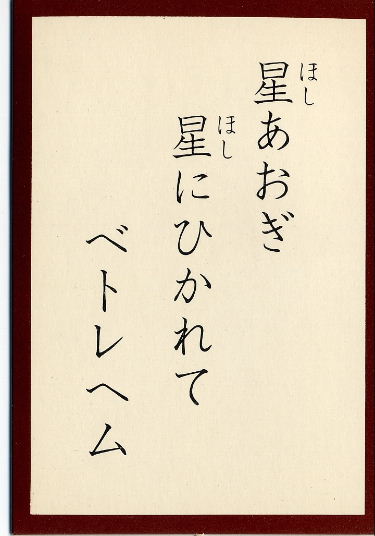 星あおぎ
星にひかれて
ベトレヘム
ほし
ほし